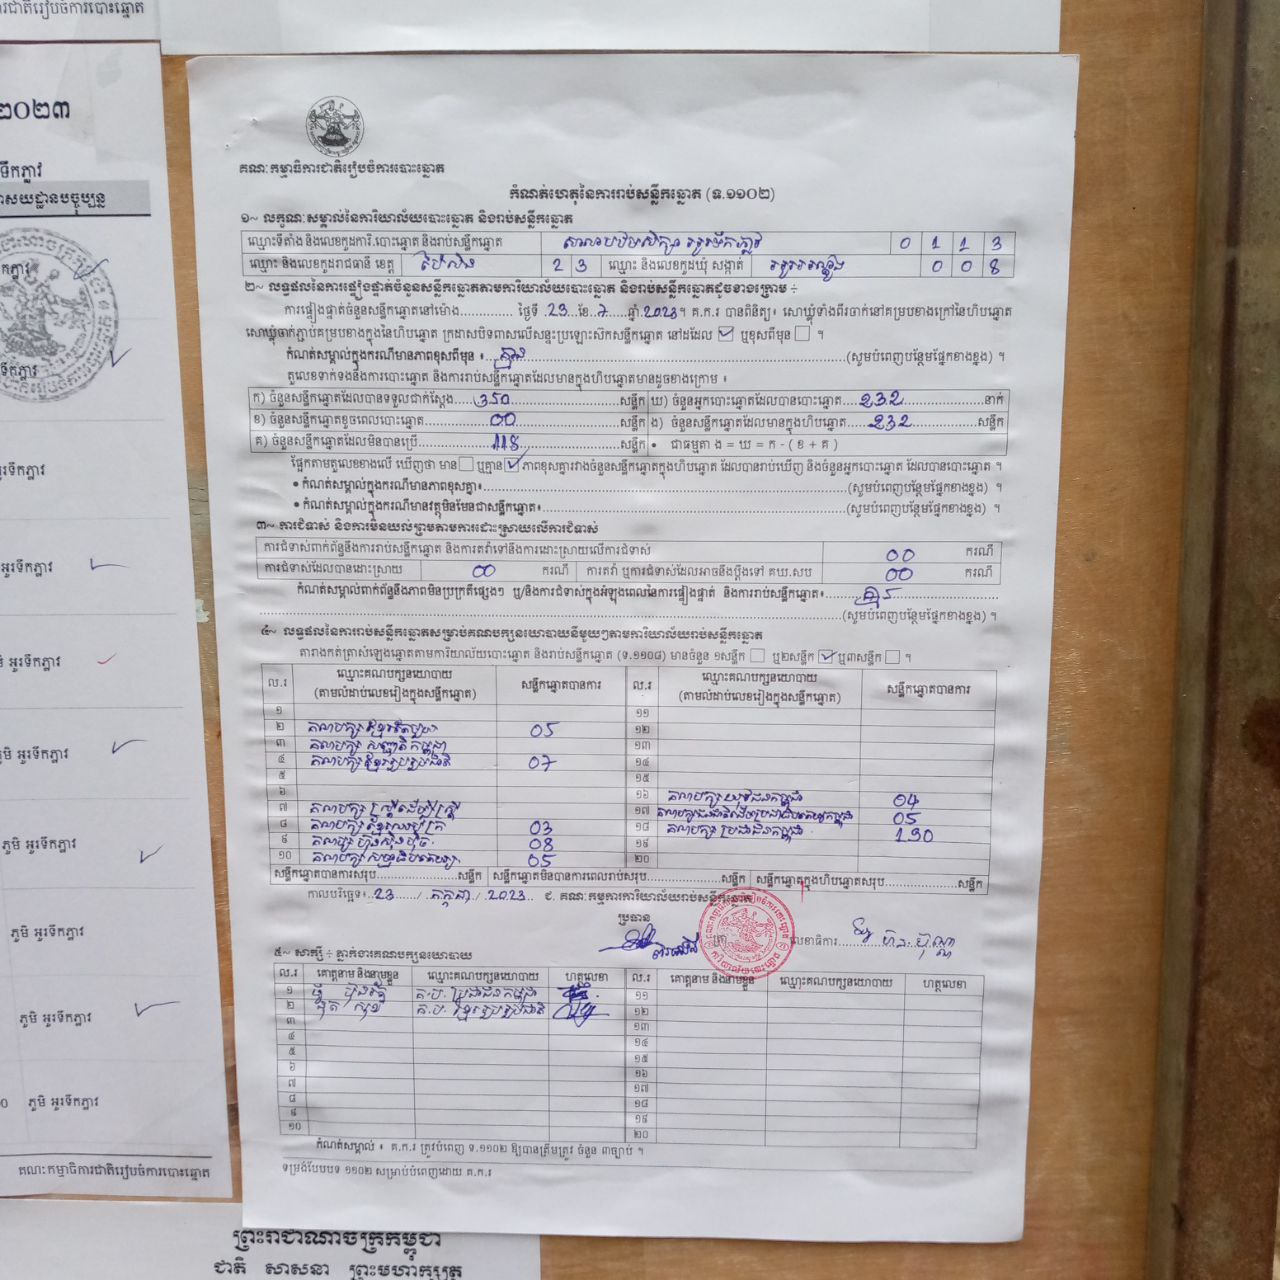 ារជាតិរៀបចំការបោះឆ្នោត
២០២៣
ទឹកភ្លាវ
គណៈកម្មាធិការជាតិរៀបចំការបោះឆ្នោត
កំណត់ហេតុនៃការរាប់សន្លឹកឆ្នោត (ទ.១១០២)
១~ លក្ខណៈសម្គាល់នៃការិយាល័យបោះឆ្នោត និងរាប់សន្លឹកឆ្នោត
ឈ្មោះទីតាំង និងលេខកូដការិ.បោះឆ្នោត និងរាប់សន្លឹកឆ្នោត សាលាបឋមសិក្សា អូរទឹកភ្លាវ 0 1 1 3
ឈ្មោះ និងលេខកូដរាជធានី ខេត្ត ប៉ៃលិន 2 3 ឈ្មោះ និងលេខកូដឃុំ សង្កាត់ 0 0 8
២~ លទ្ធផលនៃការផ្ទៀងផ្ទាត់ចំនួនសន្លឹកឆ្នោតតាមការិយាល័យបោះឆ្នោត និងរាប់សន្លឹកឆ្នោតដូចខាងក្រោម ÷
ការផ្ទៀងផ្ទាត់ចំនួនសន្លឹកឆ្នោតនៅម៉ោង.............. ថ្ងៃទី .23..ខែ.7.....ឆ្នាំ.2023។ គ.ក.រ បានពិនិត្យ៖ សោឃ្លុំទាំងពីរចាក់នៅគម្របខាងក្រៅនៃហិបឆ្នោត
សោឃ្លុំចាក់ភ្ជាប់គម្របខាងក្នុងនៃហិបឆ្នោត ក្រដាសបិទពាសលើសន្ទះប្រឡោះស៊កសន្លឹកឆ្នោត នៅដដែល ☑ ឬខុសពីមុន ☐ ។
កំណត់សម្គាល់ក្នុងករណីមានភាពខុសពីមុន ៖...គ្មាន...(សូមបំពេញបន្ថែមផ្នែកខាងខ្នង) ។
តួលេខទាក់ទងនឹងការបោះឆ្នោត និងការរាប់សន្លឹកឆ្នោតដែលមានក្នុងហិបឆ្នោតមានដូចខាងក្រោម ៖
ក) ចំនួនសន្លឹកឆ្នោតដែលបានទទួលជាក់ស្តែង.....350.....សន្លឹក ឃ) ចំនួនអ្នកបោះឆ្នោតដែលបានបោះឆ្នោត...232...នាក់
ខ) ចំនួនសន្លឹកឆ្នោតខូចពេលបោះឆ្នោត.....00.....សន្លឹក ង) ចំនួនសន្លឹកឆ្នោតដែលមានក្នុងហិបឆ្នោត...232...សន្លឹក
គ) ចំនួនសន្លឹកឆ្នោតដែលមិនបានប្រើ.....118.....សន្លឹក • ជាធម្មតា ង = ឃ = ក - ( ខ + គ )
ផ្អែកតាមតួលេខខាងលើ ឃើញថា មាន ☐ ឬគ្មាន ☑ ភាពខុសគ្នារវាងចំនួនសន្លឹកឆ្នោតក្នុងហិបឆ្នោត ដែលបានរាប់ឃើញ និងចំនួនអ្នកបោះឆ្នោត ដែលបានបោះឆ្នោត ។
• កំណត់សម្គាល់ក្នុងករណីមានភាពខុសគ្នា៖...(សូមបំពេញបន្ថែមផ្នែកខាងខ្នង) ។
• កំណត់សម្គាល់ក្នុងករណីមានវត្ថុមិនមែនជាសន្លឹកឆ្នោត៖...(សូមបំពេញបន្ថែមផ្នែកខាងខ្នង) ។
៣~ ការជំទាស់ និងការមិនយល់ព្រមតាមការដោះស្រាយលើការជំទាស់
ការជំទាស់ពាក់ព័ន្ធនឹងការរាប់សន្លឹកឆ្នោត និងការតវ៉ាទៅនឹងការដោះស្រាយលើការជំទាស់ 00 ករណី
ការជំទាស់ដែលបានដោះស្រាយ 00 ករណី ការតវ៉ា ឬការជំទាស់ដែលអាចនឹងប្តឹងទៅ គឃ.សប 00 ករណី
កំណត់សម្គាល់ពាក់ព័ន្ធនឹងភាពមិនប្រក្រតីផ្សេងៗ ឬ/និងការជំទាស់ក្នុងអំឡុងពេលនៃការផ្ទៀងផ្ទាត់ និងការរាប់សន្លឹកឆ្នោត៖...គ្មាន...
(សូមបំពេញបន្ថែមផ្នែកខាងខ្នង) ។
៤~ លទ្ធផលនៃការរាប់សន្លឹកឆ្នោតសម្រាប់គណបក្សនយោបាយនីមួយៗតាមការិយាល័យរាប់សន្លឹកឆ្នោត
តារាងកត់ត្រាសំឡេងឆ្នោតតាមការិយាល័យបោះឆ្នោត និងរាប់សន្លឹកឆ្នោត (ទ.១១០៨) មានចំនួន ១សន្លឹក ☐ ឬ២សន្លឹក ☑ ឬ៣សន្លឹក ☐ ។
ល.រ ឈ្មោះគណបក្សនយោបាយ (តាមលំដាប់លេខរៀងក្នុងសន្លឹកឆ្នោត) សន្លឹកឆ្នោតបានការ ល.រ ឈ្មោះគណបក្សនយោបាយ (តាមលំដាប់លេខរៀងក្នុងសន្លឹកឆ្នោត) សន្លឹកឆ្នោតបានការ
១ ១១
២ គណបក្សខ្មែរតែមួយ 05 ១២
៣ ១៣
៤ គណបក្សខ្មែររួបរួមជាតិ 07 ១៤
៥ ១៥
៦ ១៦ គណបក្សយុវជនកម្ពុជា 04
៧ គណបក្ស ស្ត្រីដើម្បីស្ត្រី ១៧ 05
៨ 03 ១៨ គណបក្ស ប្រជាជនកម្ពុជា 190
៩ គណបក្ស ហ៊្វុនស៊ិនប៉ិច 08 ១៩
១០ 05 ២០
សន្លឹកឆ្នោតបានការសរុប......សន្លឹក សន្លឹកឆ្នោតមិនបានការពេលរាប់សរុប......សន្លឹក សន្លឹកឆ្នោតក្នុងហិបឆ្នោតសរុប......សន្លឹក
កាលបរិច្ឆេទ÷..23..../..កក្កដា./..2023.. ជ. គណៈកម្មការការិយាល័យរាប់សន្លឹកឆ្នោត
ប្រធាន
ត្រា លេខាធិការ
៥~ សាក្សី ÷ ភ្នាក់ងារគណបក្សនយោបាយ
ល.រ គោត្តនាម និងនាមខ្លួន ឈ្មោះគណបក្សនយោបាយ ហត្ថលេខា ល.រ គោត្តនាម និងនាមខ្លួន ឈ្មោះគណបក្សនយោបាយ ហត្ថលេខា
១ គ.ប. ប្រជាជនកម្ពុជា ១១
២ គ.ប. ខ្មែររួបរួមជាតិ ១២
៣ ១៣
៤ ១៤
៥ ១៥
៦ ១៦
៧ ១៧
៨ ១៨
៩ ១៩
១០ ២០
កំណត់សម្គាល់ ៖ គ.ក.រ ត្រូវបំពេញ ទ.១១០២ ឱ្យបានត្រឹមត្រូវ ចំនួន ៣ច្បាប់ ។
ទម្រង់បែបបទ ១១០២ សម្រាប់បំពេញដោយ គ.ក.រ
ាសយដ្ឋានបច្ចុប្បន្ន
ទឹកភ្លាវ
អូរទឹកភ្លាវ
អូរទឹកភ្លាវ
អូរទឹកភ្លាវ
ភូមិ អូរទឹកភ្លាវ
ភូមិ អូរទឹកភ្លាវ
ភូមិ អូរទឹកភ្លាវ
ភូមិ អូរទឹកភ្លាវ
ភូមិ អូរទឹកភ្លាវ
គណៈកម្មាធិការជាតិរៀបចំការបោះឆ្នោត
ព្រះរាជាណាចក្រកម្ពុជា
ជាតិ សាសនា ព្រះមហាក្សត្រ